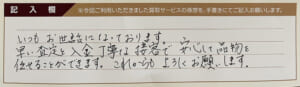 記入欄
※今回ご利用いただきました買取サービスの感想を、手書きにてご記入お願いします。
いつもお世話になっております。
早い査定と入金、丁寧な接客で安心して品物を
任せることができます。これからもよろしくお願いします。